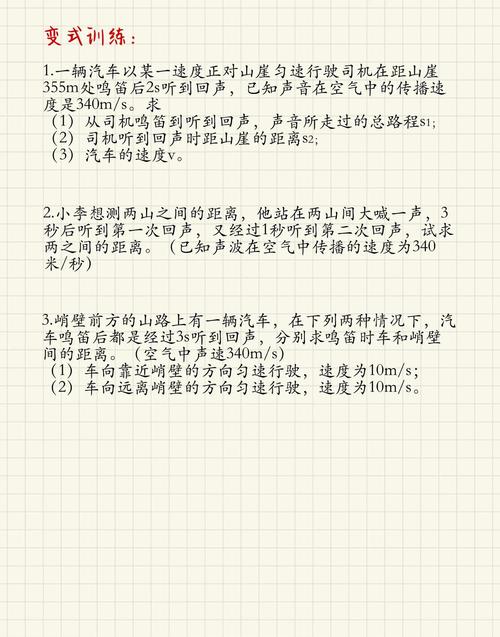 变式训练：
1.一辆汽车以某一速度正对山崖匀速行驶司机在距山崖
355m处鸣笛后2s听到回声，已知声音在空气中的传播速
度是340m/s。求
（1）从司机鸣笛到听到回声，声音所走过的总路程s1;
（2）司机听到回声时距山崖的距离s2;
（3）汽车的速度v。
2.小李想测两山之间的距离，他站在两山间大喊一声，3
秒后听到第一次回声，又经过1秒听到第二次回声，试求
两之间的距离。（已知声波在空气中传播的速度为340
米/秒）
3.峭壁前方的山路上有一辆汽车，在下列两种情况下，汽
车鸣笛后都是经过3s听到回声，分别求鸣笛时车和峭壁
间的距离。（空气中声速340m/s）
（1）车向靠近峭壁的方向匀速行驶，速度为10m/s；
（2）车向远离峭壁的方向匀速行驶，速度为10m/s。